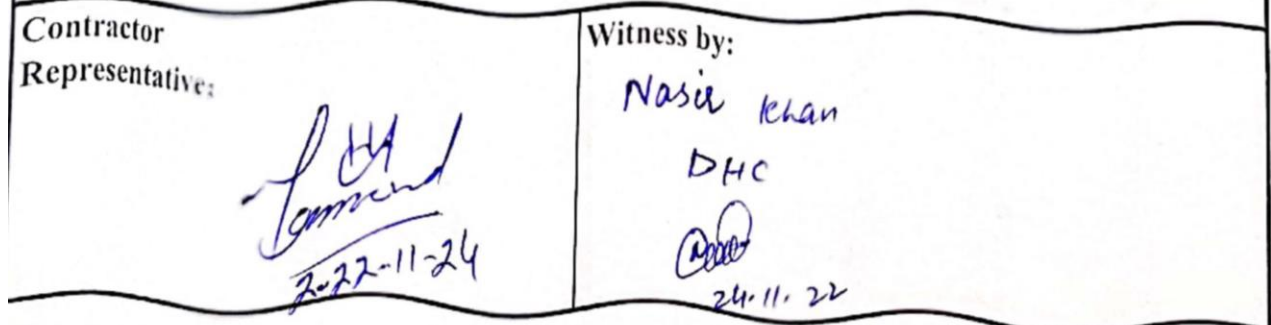 Contractor
Representative:
2-22-11-24
Witness by:
Nasir Khan
DHC
24.11.22